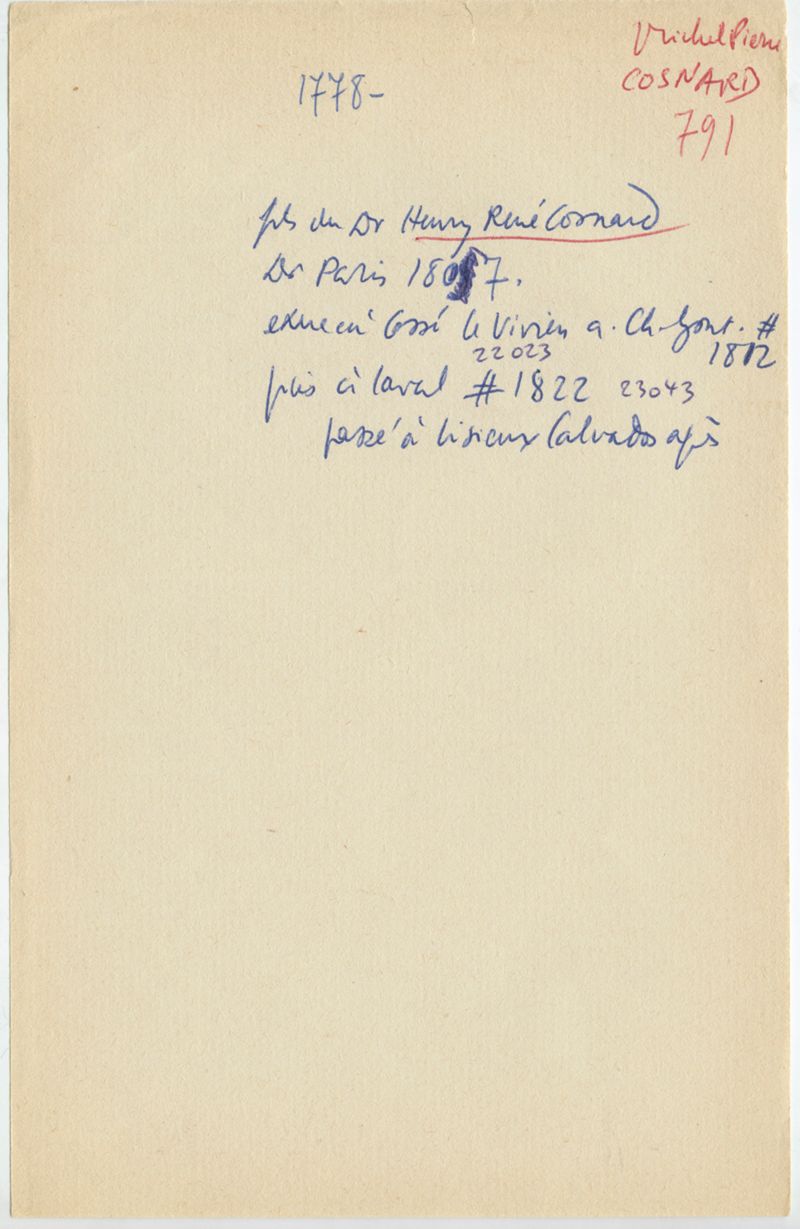 Michel Pierre
COSNARD
791
1778-
fils du Dr Henry René Cosnard
Dr Paris 1807.
exerce à Cossé le Vivien a. Ch. Gont. #
1812
22023
puis à Laval # 1822 23043
passé à Lisieux Calvados après